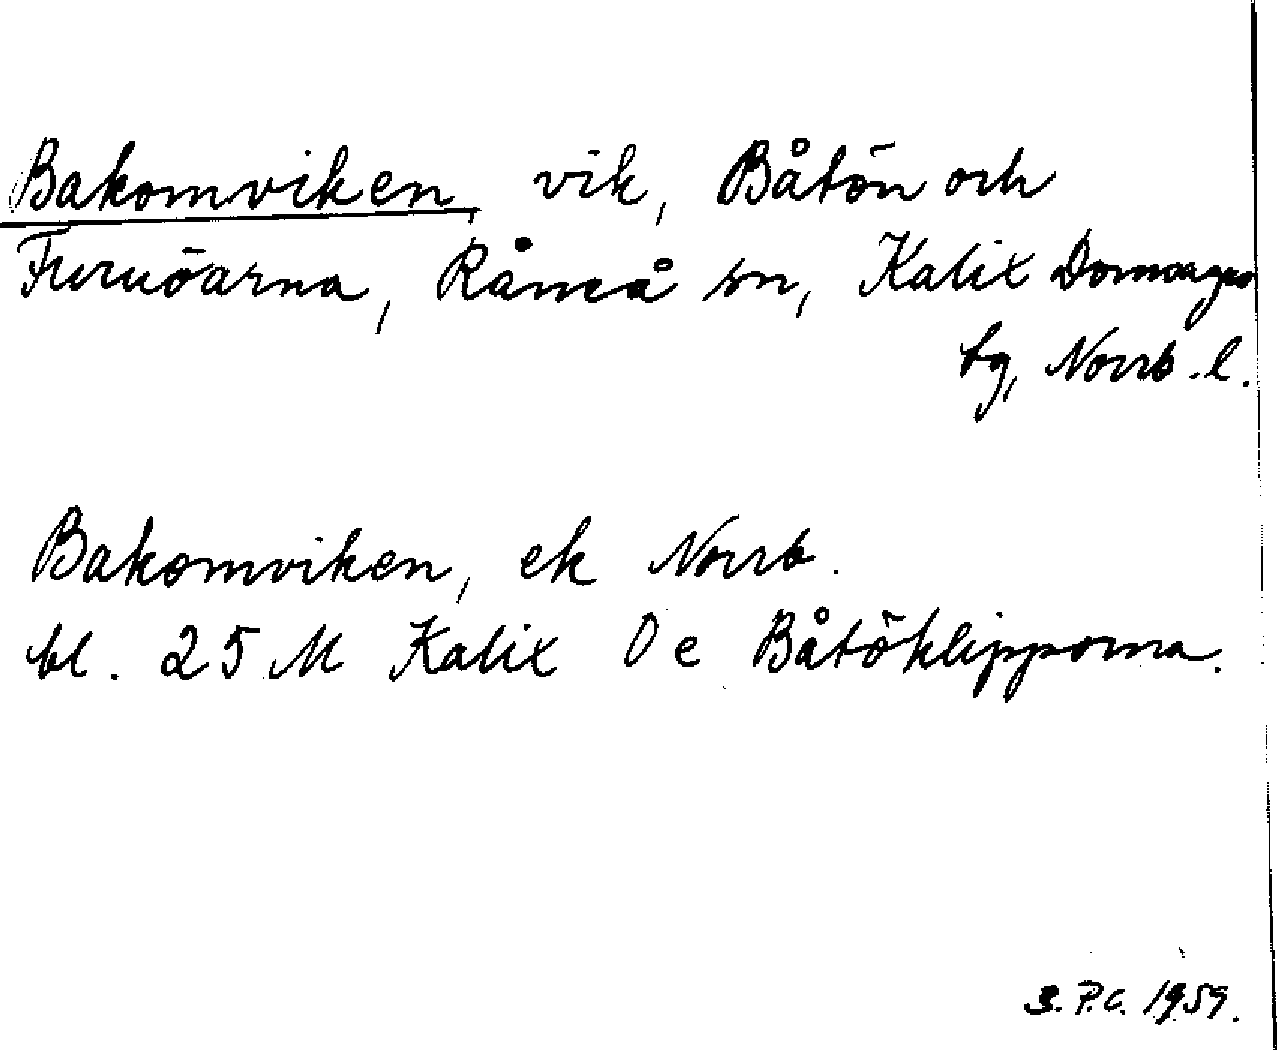 Bakomviken, vik, Båtön och
Furuöarna, Råneå sn, Kalix Domsagas
tg, Norrb. l.
Bakomviken, ek Norrb.
bl. 25 M Kalix O e Båtöklipporna.
S.P.C. 1959.